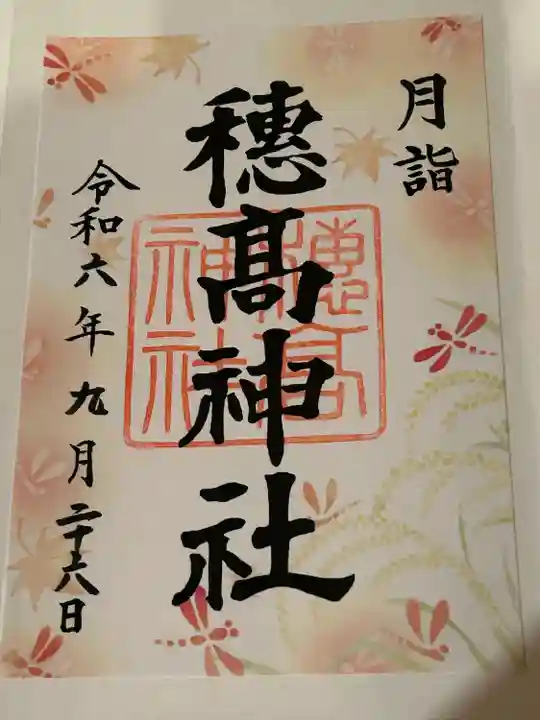 月詣
穗髙神社
穗高神社
令和六年九月二十六日